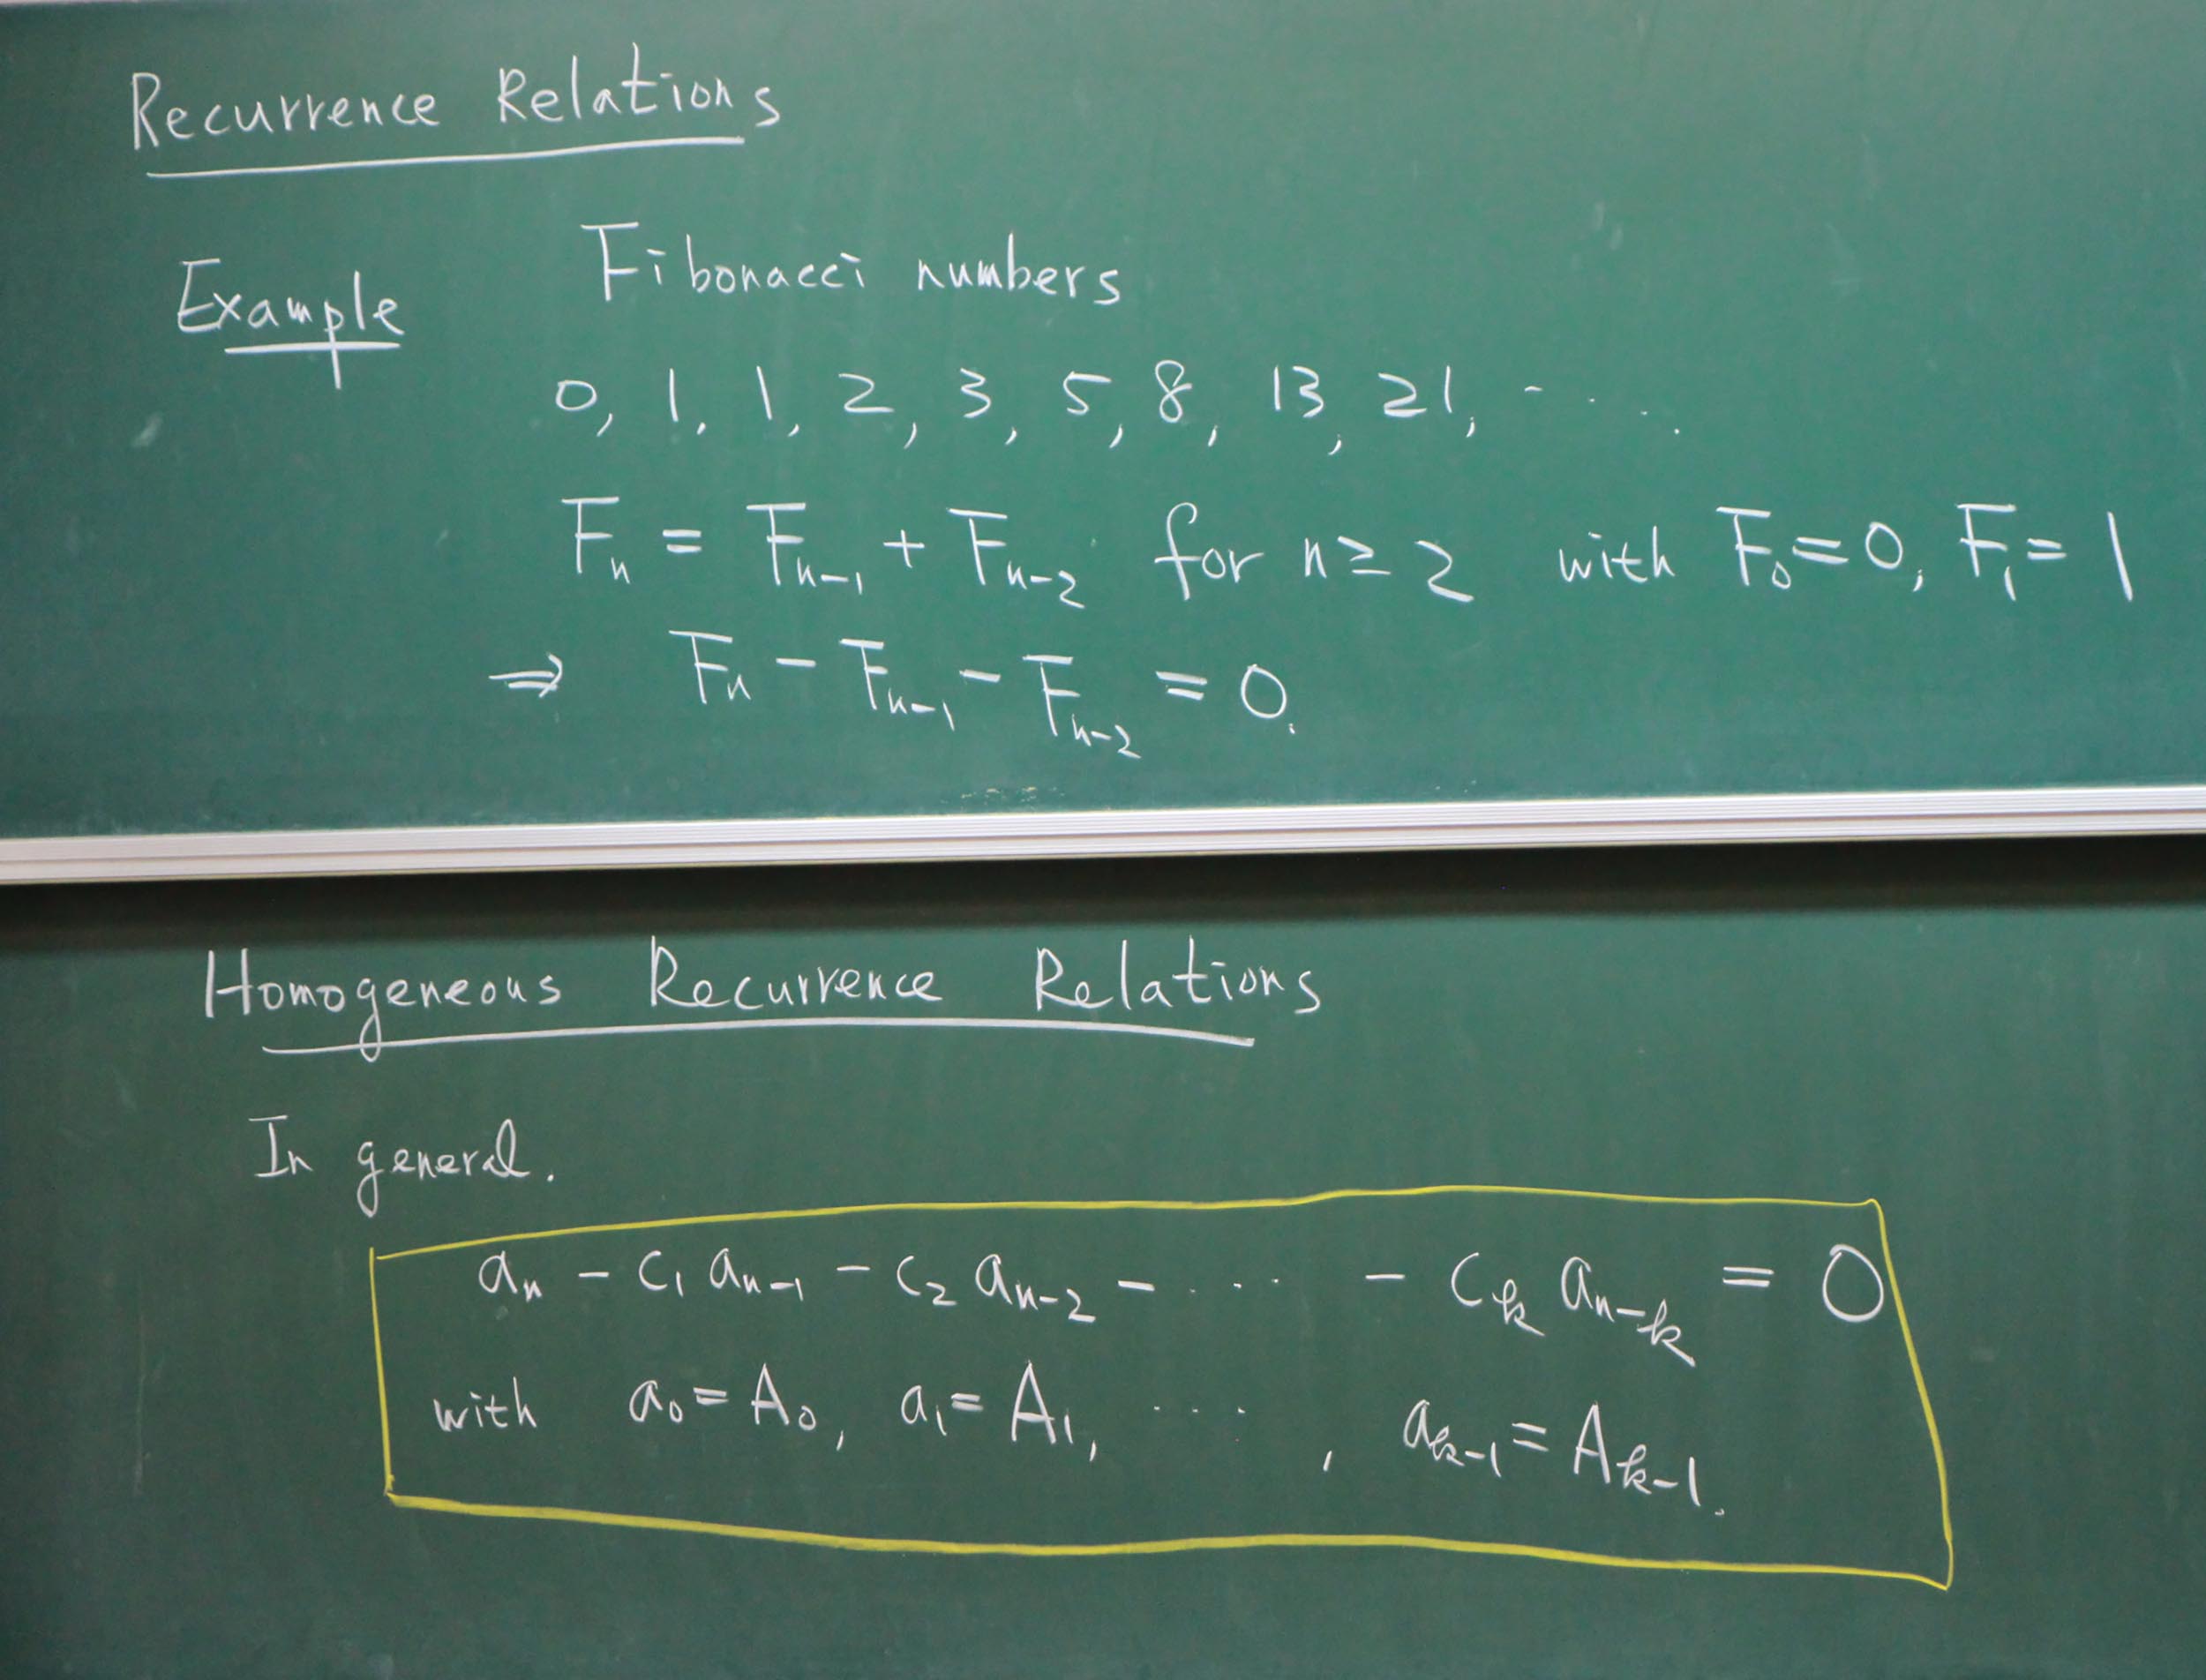 Recurrence Relations
Example Fibonacci numbers
0, 1, 1, 2, 3, 5, 8, 13, 21, ....
Fₙ = Fₙ₋₁ + Fₙ₋₂ for n ≥ 2 with F₀ = 0, F₁ = 1
⇒ Fₙ − Fₙ₋₁ − Fₙ₋₂ = 0.
Homogeneous Recurrence Relations
In general.
aₙ − c₁ aₙ₋₁ − c₂ aₙ₋₂ − ... − cₖ aₙ₋ₖ = 0
with a₀ = A₀, a₁ = A₁, ... , aₖ₋₁ = Aₖ₋₁.